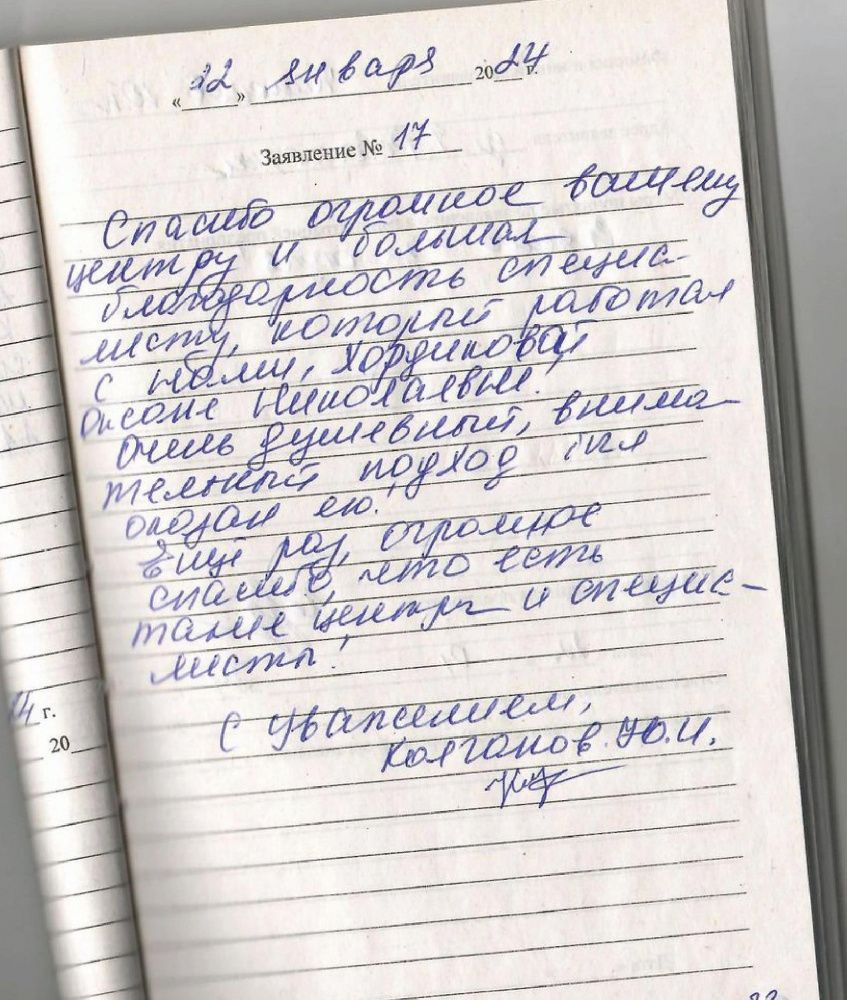 «22» января 2024 г.
Заявление № 17
Спасибо огромное вашему
центру и большая
благодарность специа-
листу, который работал
с нами, Хордиковой
Оксане Николаевне!
Очень душевный, внима-
тельный подход был
оказан ею!
Ещё раз, огромное
спасибо, что есть
такие центры и специа-
листы!
С уважением,
Колганов Ю.И.
14 г.
20